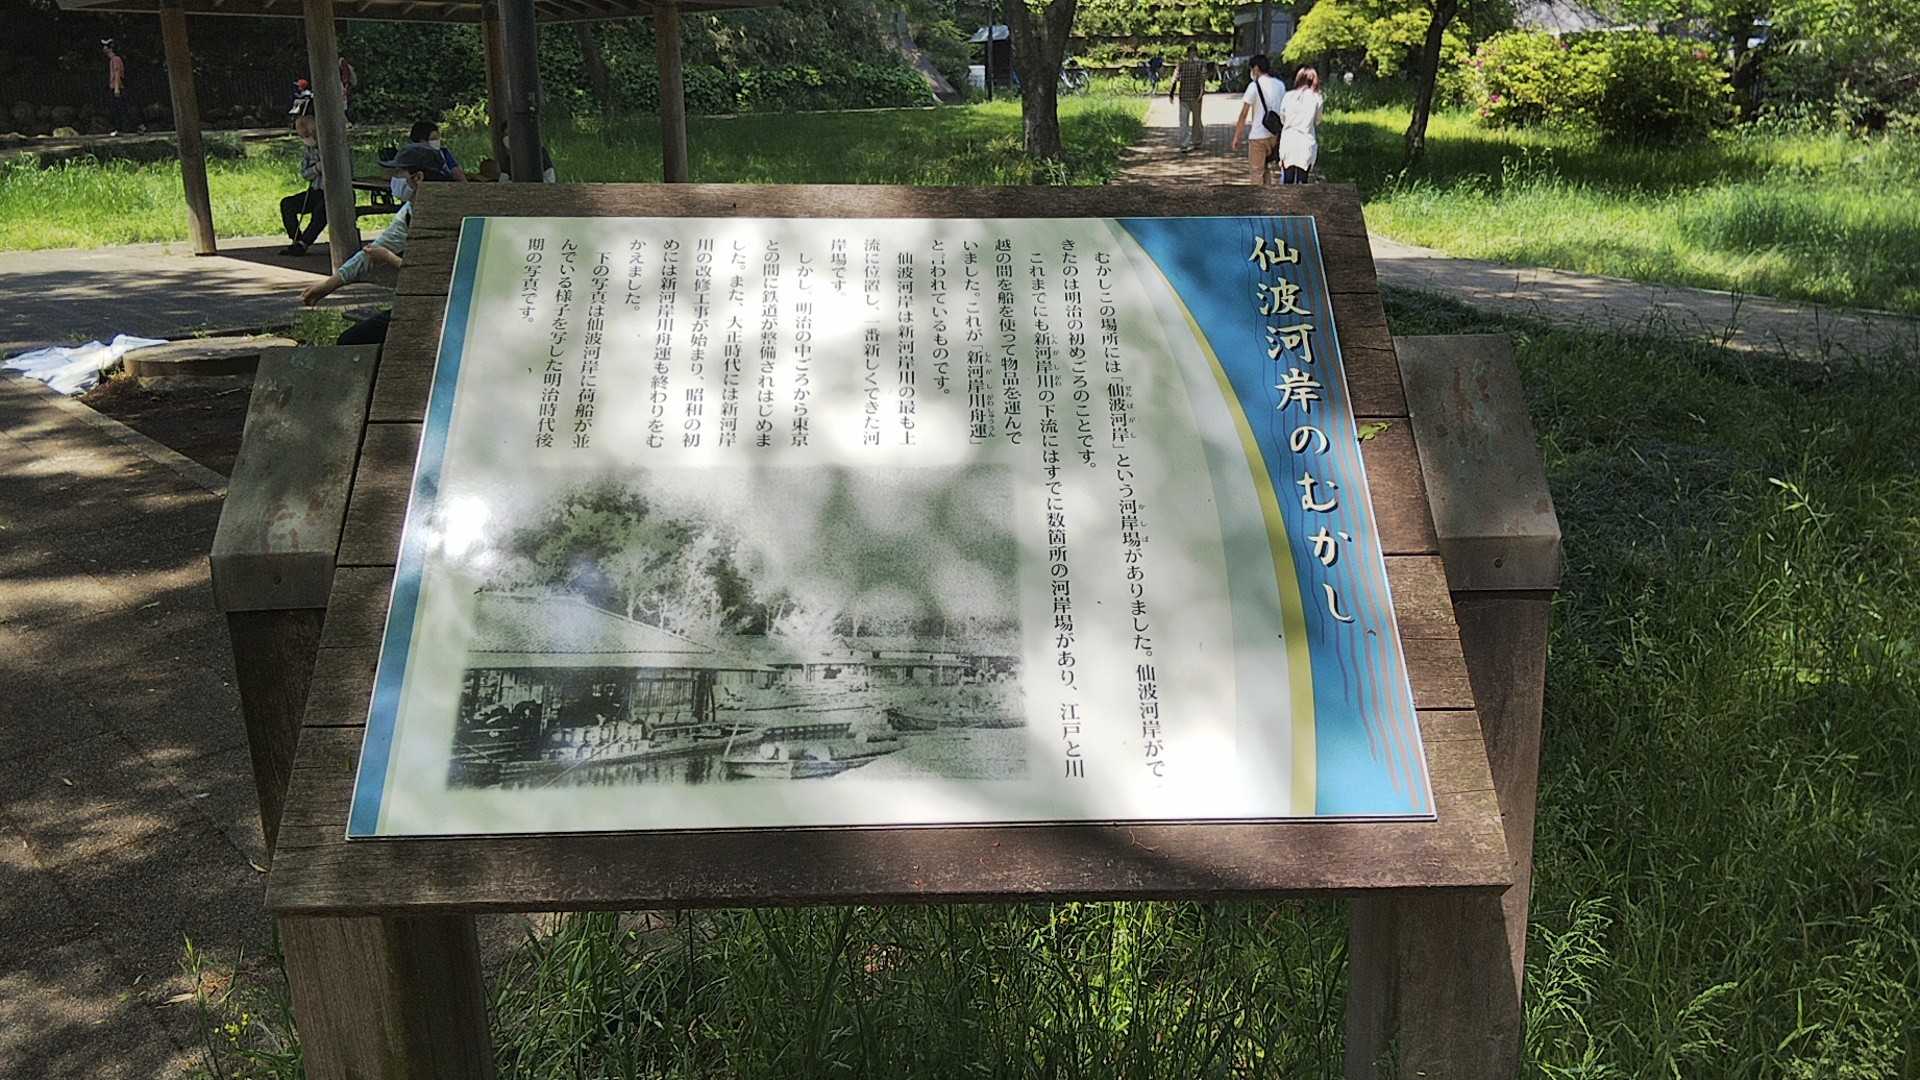 仙波河岸のむかし
むかしこの場所には「仙波河岸」という河岸場がありました。仙波河岸がで
きたのは明治の初めごろのことです。
これまでにも新河岸川の下流にはすでに数箇所の河岸場があり、江戸と川
越の間を船を使って物品を運んで
いました。これが「新河岸川舟運」
と言われているものです。
仙波河岸は新河岸川の最も上
流に位置し、一番新しくできた河
岸場です。
しかし、明治の中ごろから東京
との間に鉄道が整備されはじめま
した。また、大正時代には新河岸
川の改修工事が始まり、昭和の初
めには新河岸川舟運も終わりをむ
かえました。
下の写真は仙波河岸に荷船が並
んでいる様子を写した明治時代後
期の写真です。